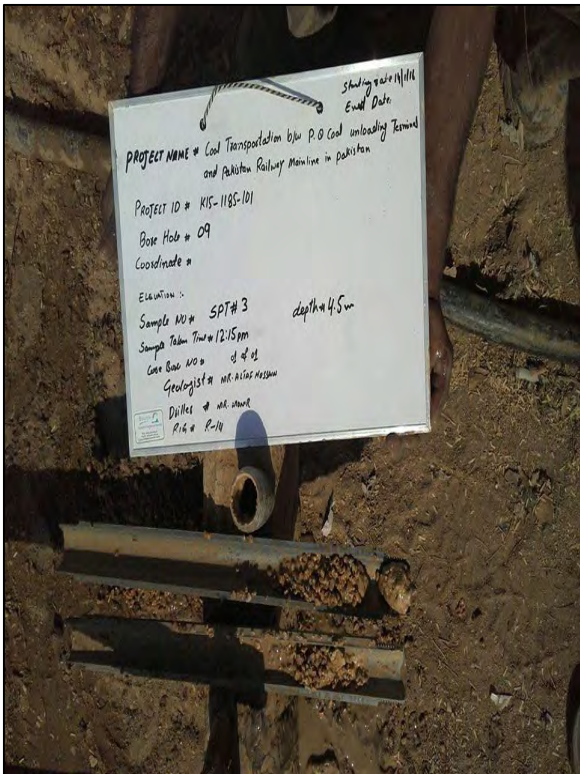 Starting date 14/1/16
End Date.
PROJECT NAME # Coal Transportation b/w P.Q Coal unloading Terminal
and Pakistan Railway Mainline in pakistan
PROJECT ID # K15-1185-101
Bore Hole # 09
Coordinate #
ELEVATION :-
Sample NO # SPT # 3 depth # 4.5m
Sample Taken Time # 12:15pm
Core Box NO # 01 of 01
Geologist # MR. ALTAF HUSSAIN
Driller # MR.
RIG # R-14